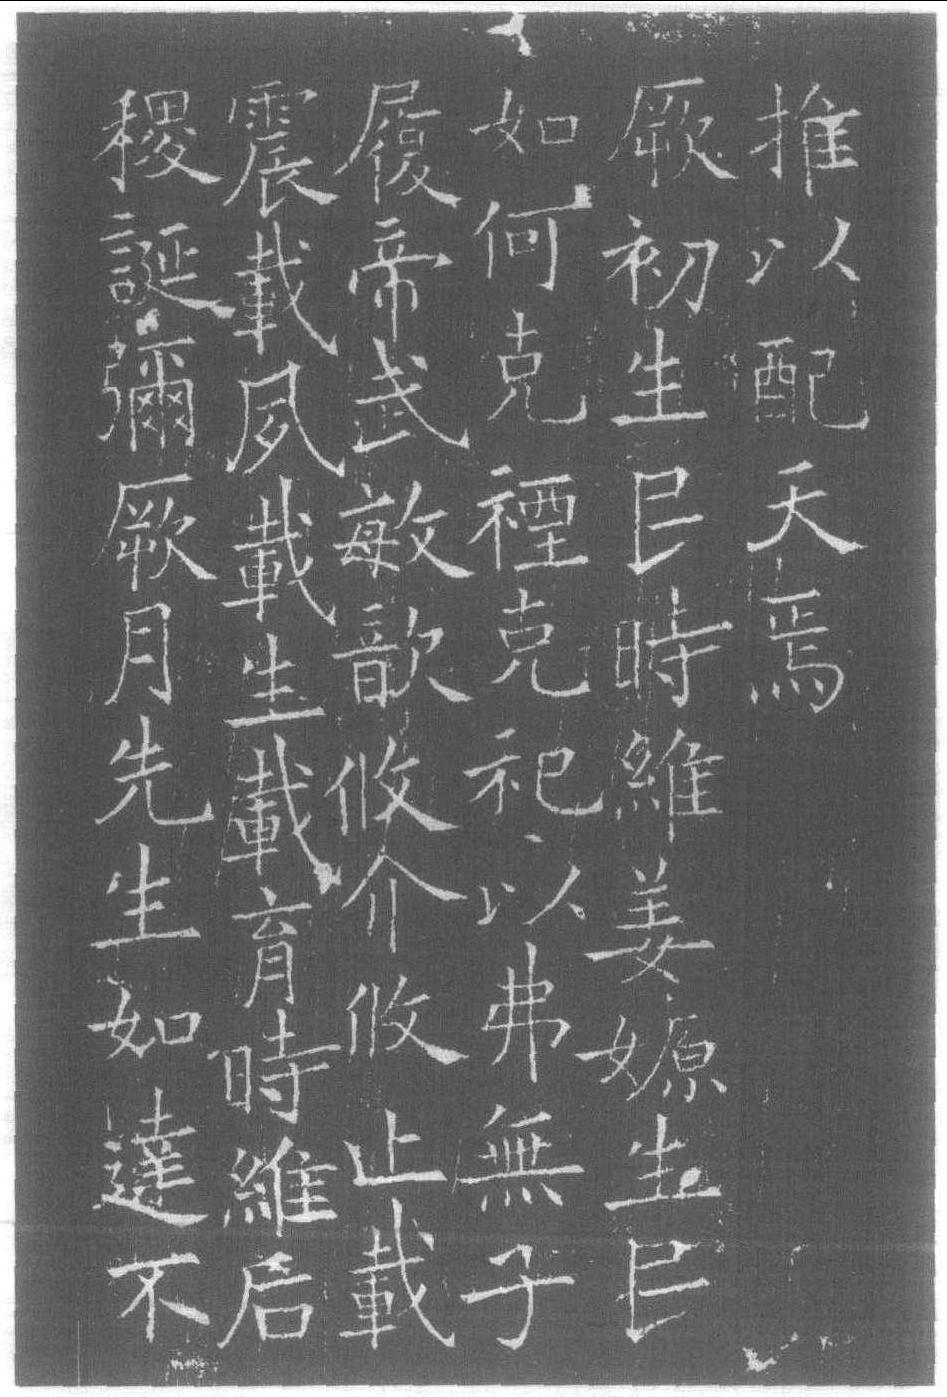 推以配天焉
厥初生民時維姜嫄生民
如何克禋克祀以弗無子
履帝武敏歆攸介攸止載
震載夙載生載育時維后
稷誕彌厥月先生如達不